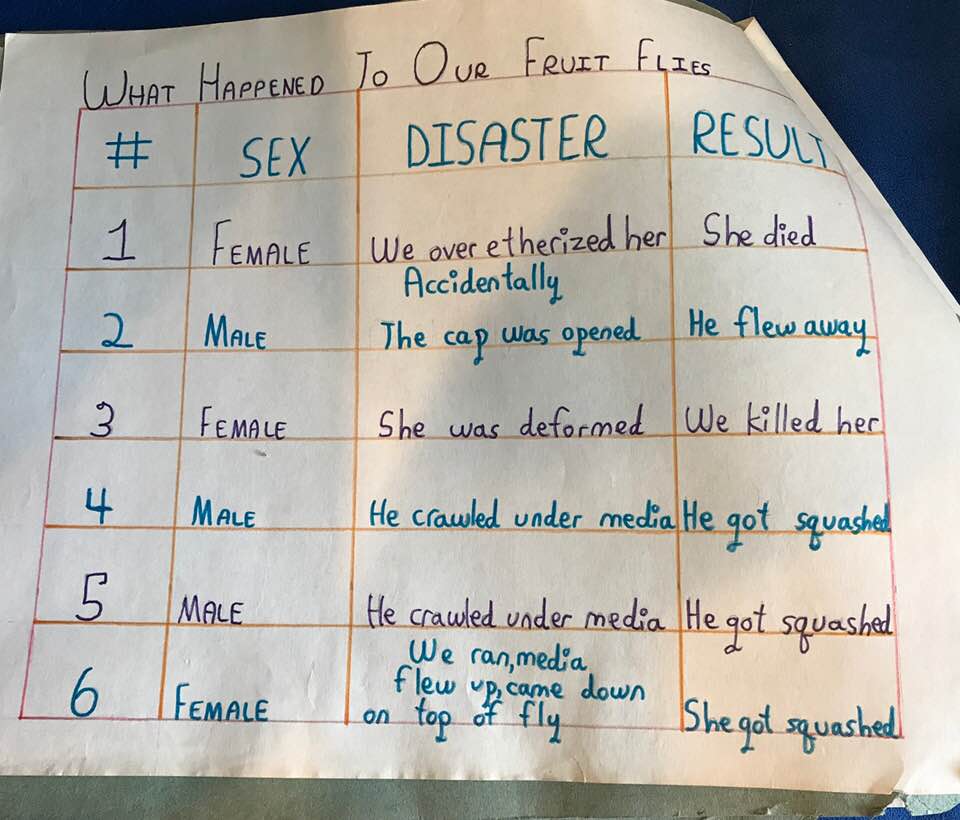 What Happened To Our Fruit Flies
# SEX DISASTER RESULT
1 Female We over etherized her She died
Accidentally
2 Male The cap was opened He flew away
3 Female She was deformed We killed her
4 Male He crawled under media He got squashed
5 Male He crawled under media He got squashed
We ran, media
flew up, came down
6 Female on top of fly She got squashed